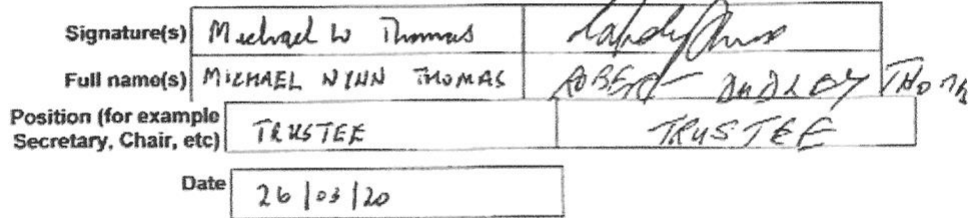 Signature(s) Michael W Thomas
Full name(s) MICHAEL WYNN THOMAS ROBERT DUDLEY THOMAS
Position (for example
Secretary, Chair, etc) TRUSTEE TRUSTEE
Date 26/03/20